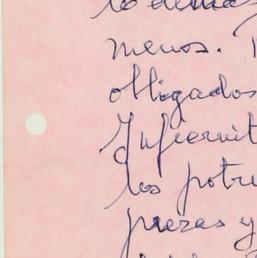 lo demás
menos.
obligados
Infiernit
los potre
piezas y